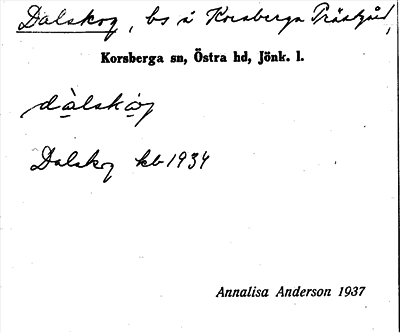 Dalskog, bs å Korsberga Prästgård,
Korsberga sn, Östra hd, Jönk. l.
dàlskòg
Dalskog kb 1934
Annalisa Anderson 1937